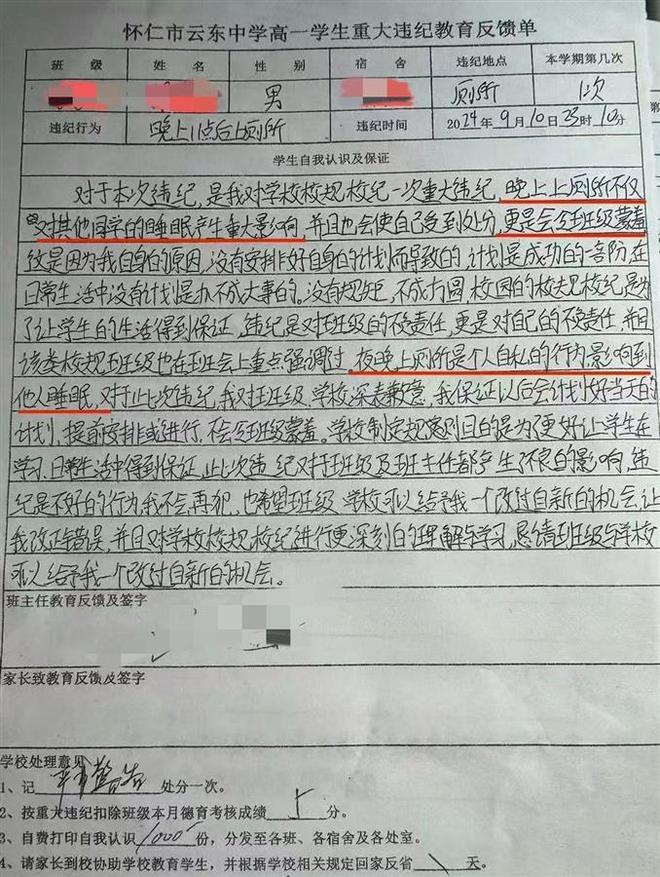 怀仁市云东中学高一学生重大违纪教育反馈单
班 级 姓 名 性 别 宿 舍 违纪地点 本学期第几次
男 厕所 1次
违纪行为 晚上11点后上厕所 违纪时间 2024年9月10日23时10分
学生自我认识及保证
对于本次违纪，是我对学校校规校纪一次重大违纪，晚上上厕所不仅
对其他同学的睡眠产生重大影响，并且也会使自己受到处分，更是会令班级蒙羞
这是因为我自身的原因，没有安排好自身的计划而导致的，计划是成功的一部份，在
日常生活中没有计划是办不成大事的。没有规矩，不成方圆，校园的校规校纪是为
了让学生的生活得到保证，违纪是对班级的不负责任，更是对自己的不负责任，并且
该类校规班级也在班会上重点强调过，夜晚上厕所是个人自私的行为影响到
他人睡眠，对于此次违纪，我对班级、学校深表歉意，我保证以后会计划好当天的
计划，提前安排或进行，不会令班级蒙羞。学校制定规章原则目的是为了更好让学生在
学习、日常生活中得到保证，此次违纪对于班级及班主任都产生了不良的影响，违
纪是不好的行为，我不会再犯，也希望班级、学校可以给予我一个改过自新的机会，让
我改正错误，并且对学校校规校纪进行更深刻的理解与学习，恳请班级与学校
可以给予我一个改过自新的机会。
班主任教育反馈及签字
家长致教育反馈及签字
学校处理意见
1、记 严重警告 处分一次。
2、按重大违纪扣除班级本月德育考核成绩 5 分。
3、自费打印自我认识 1000 份，分发至各班、各宿舍及各处室。
4、请家长到校协助学校教育学生，并根据学校相关规定回家反省 天。